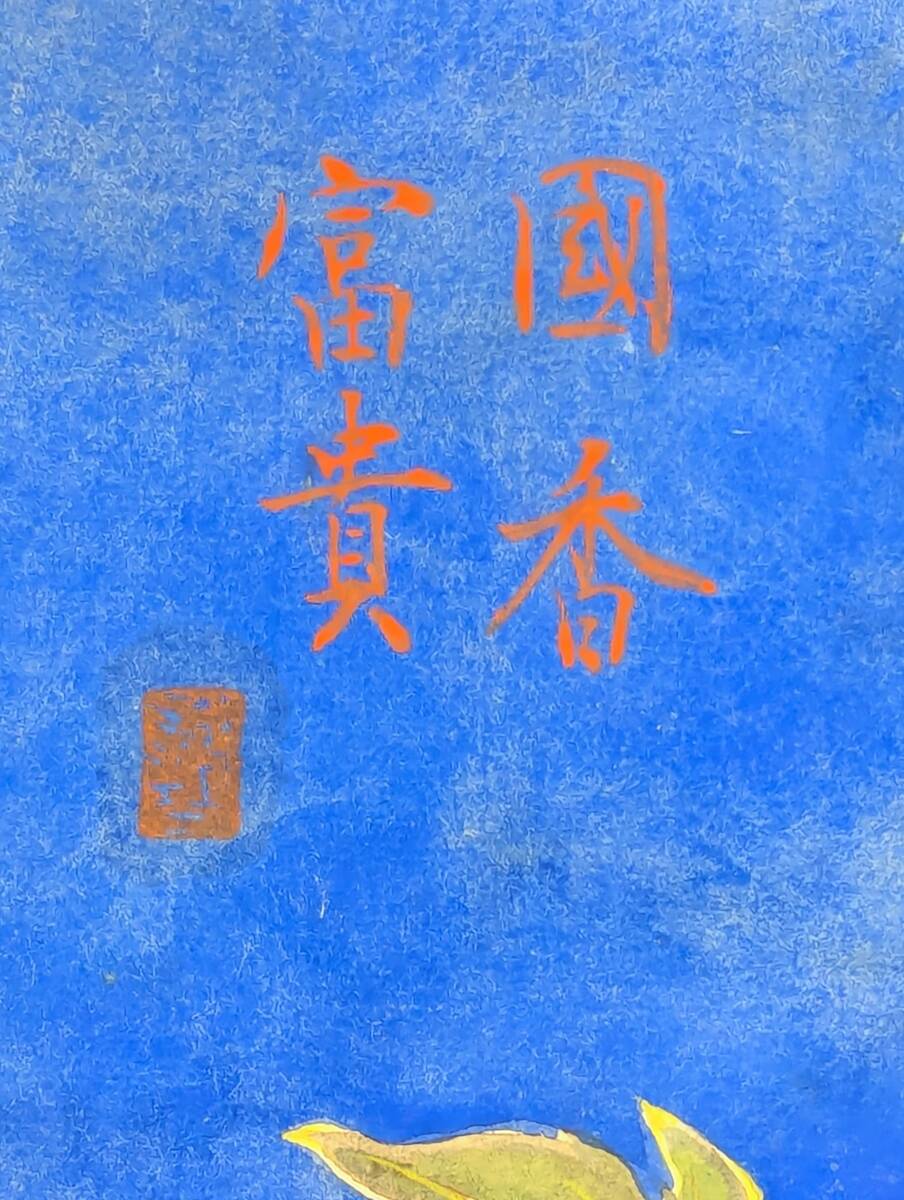 國香
富貴